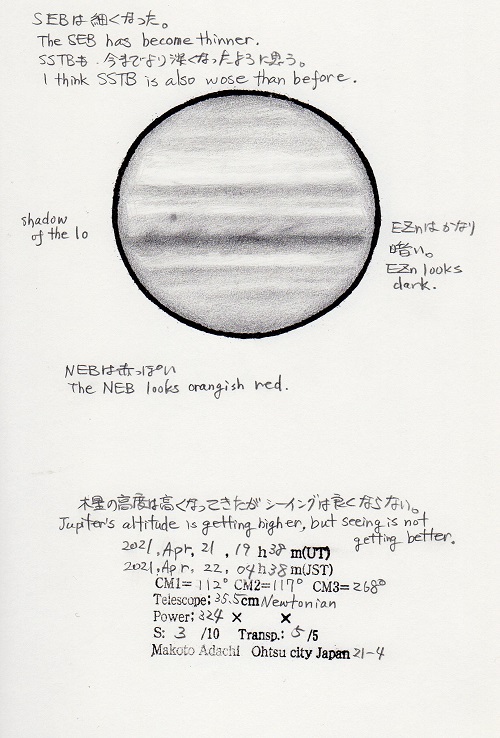 SEBは細くなった。
The SEB has become thinner.
SSTBも 今までより淡くなったように思う。
I think SSTB is also wose than before.
shadow
of the Io
EZnはかなり
暗い。
EZn looks
dark.
NEBは赤っぽい
The NEB looks orangish red.
木星の高度は高くなってきたがシーイングは良くならない。
Jupiter's altitude is getting higher, but seeing is not
getting better.
2021, Apr, 21, 19 h 38 m(UT)
2021, Apr, 22, 04 h 38 m(JST)
CM1= 112° CM2= 117° CM3= 268°
Telescope: 35.5cm Newtonian
Power: 324 × ×
S: 3 /10 Transp.: 5 /5
Makoto Adachi Ohtsu city Japan 21-4